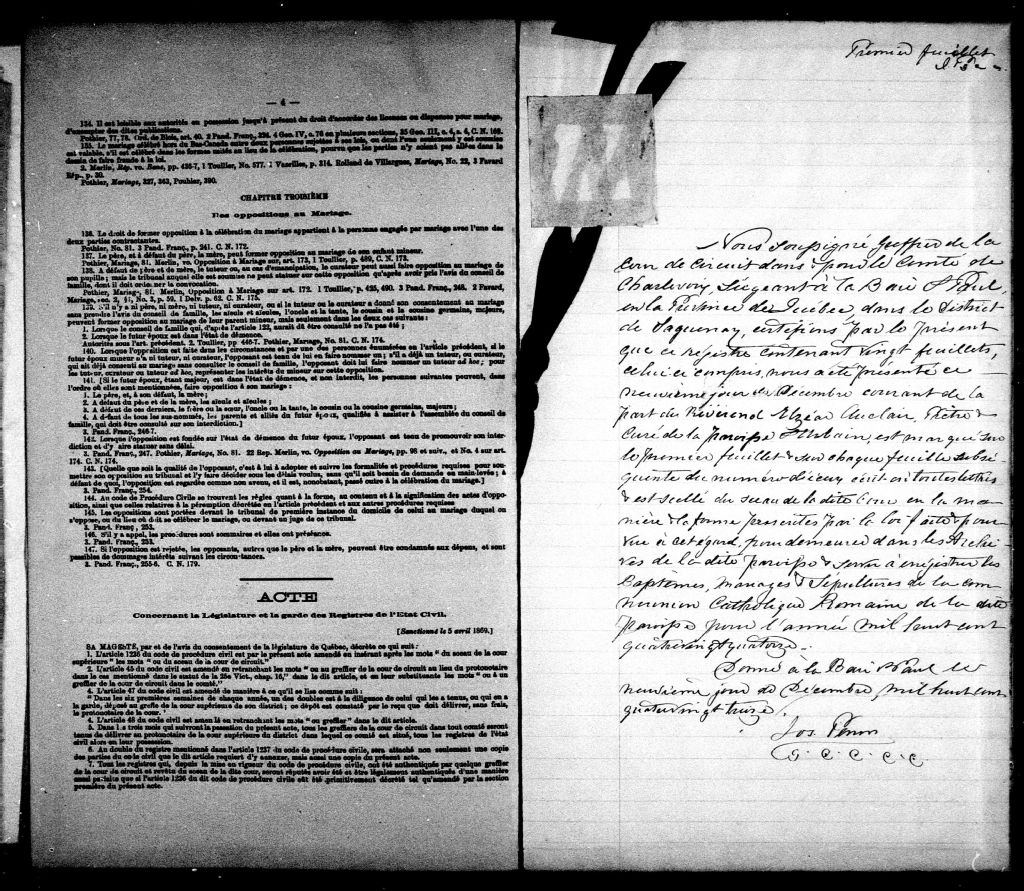 — 4 —
134. Il est loisible aux autorités en possession jusqu'à présent du droit d'accorder des licenses ou dispenses pour mariage,
d'exempter des dites publications.
Pothier, 77, 78. Ord. de Blois, art. 40. 2 Pand. Franç., 234. 4 Geo. IV, c. 76 en plusieurs sections, 35 Geo. III, c. 4, s. 4, C. N. 169.
135. Le mariage célébré hors du Bas-Canada entre deux personnes sujettes à ses lois,
est valable, s'il est célébré dans les formes usitées au lieu de la célébration, pourvu que les parties n'y soient pas allées dans le
dessein de faire fraude à la loi.
2. Merlin, Rép. vo. Bans, pp. 436-7, 1 Toullier, No. 577. 1 Vazeilles, p. 314. Rolland de Villargues, Mariage, No. 22, 3 Favard
Rép., p. 30.
Pothier, Mariage, 327, 363,
CHAPITRE TROISIÈME
Des oppositions au Mariage.
136. Le droit de former opposition à la célébration du mariage appartient à la personne engagée par mariage avec l'une des
deux parties contractantes.
Pothier, No. 81. 3 Pand. Franç., p. 241. C. N. 172.
137. Le père, et à défaut du père, la mère, peut former opposition au mariage de son enfant mineur.
Pothier, Mariage, 81. Merlin, vo Opposition à Mariage, sur art. 173, 1 Toullier, p. 489, C. N. 173.
138. A défaut de père et de mère, le tuteur ou, au cas d'émancipation, le curateur peut aussi faire opposition au mariage de
son pupille; mais le tribunal auquel elle est soumise ne peut statuer sur cette opposition qu'après avoir pris l'avis du conseil de
famille, dont il doit ordonner la convocation.
Pothier, Mariage, 81. Merlin, Opposition à Mariage sur art. 172. 1 Toullier, p. 425, 490. 3 Pand. Franç., 245. 2 Favard,
Mariage, sec. 2, §1, No. 3, p. 59. 1 Delv. p. 62. C. N. 175.
139. S'il n'y a ni père, ni mère, ni tuteur, ni curateur, ou si le tuteur ou le curateur a donné son consentement au mariage
sans prendre l'avis du conseil de famille, les aïeuls et aïeules, l'oncle et la tante, le cousin et la cousine germains, majeurs,
peuvent former opposition au mariage de leur parent mineur, mais seulement dans les deux cas suivants:
1. Lorsque le conseil de famille qui, d'après l'article 122, aurait dû être consulté ne l'a pas été;
2. Lorsque le futur époux est dans l'état de démence.
Autorités sous l'art. précédent. 2. Toullier, pp 446-7. Pothier, Mariage, No. 81. C. N. 174.
140. Lorsque l'opposition est faite dans les circonstances et par une des personnes énumérées en l'article précédent, si le
futur époux mineur n'a ni tuteur, ni curateur, l'opposant est tenu de lui en faire nommer un; s'il a déjà un tuteur, ou curateur,
qui ait déjà consenti au mariage sans consulter le conseil de famille, l'opposant doit lui faire nommer un tuteur ad hoc; pour
les tuteur, curateur ou tuteur ad hoc, représenter les intérêts du mineur sur cette opposition.
141. [Si le futur époux, étant majeur, est dans l'état de démence, et non interdit, les personnes suivantes peuvent, dans
l'ordre où elles sont mentionnées, faire opposition à son mariage:
1. Le père, et, à son défaut, la mère;
2. A défaut du père et de la mère, les aïeuls et aïeules;
3. A défaut de ces derniers, le frère ou la sœur, l'oncle ou la tante, le cousin ou la cousine germains, majeurs;
4. A défaut de tous les sus-nommés, les parents et alliés du futur époux, qualifiés à assister à l'assemblée du conseil de
famille, qui doit être consulté sur son interdiction.]
3. Pand. Franç., 246-7.
142. Lorsque l'opposition est fondée sur l'état de démence du futur époux, l'opposant est tenu de promouvoir son inter-
diction et d'y faire statuer sans délai.
3. Pand. Franç., 247. Pothier, Mariage, No. 81. 22 Rep. Merlin, vo. Opposition au Mariage, pp. 98 et suiv., et No. 4 sur art.
174. C. N. 174.
143. [Quelle que soit la qualité de l'opposant, c'est à lui à adopter et suivre les formalités et procédures requises pour sou-
mettre son opposition au tribunal et l'y faire décider sous les délais voulus, sans qu'il soit besoin de demande en main-levée; à
défaut de quoi, l'opposition est regardée comme non avenue, et il est, nonobstant, passé outre à la célébration du mariage.]
3. Pand. Franç., 254.
144. Au code de Procédure Civile se trouvent les règles quant à la forme, au contenu et à la signification des actes d'oppo-
sition, ainsi que celles relatives à la péremption décrétée en l'article précédent et aux autres procédures requises.
145. Les oppositions sont portées devant le tribunal de première instance du domicile de celui au mariage duquel on
s'oppose, ou du lieu où doit se célébrer le mariage, ou devant un juge de ce tribunal.
3. Pand. Franç., 252.
146. S'il y a appel, les procédures sont sommaires et elles ont préséance.
3. Pand. Franç., 253.
147. Si l'opposition est rejetée, les opposants, autres que le père et la mère, peuvent être condamnés aux dépens, et sont
passibles de dommages intérêts suivant les circonstances.
3. Pand. Franç., 255-6. C. N. 179.
ACTE
Concernant la Législature et la garde des Registres de l'Etat Civil.
[Sanctionné le 5 avril 1869.]
SA MAGESTÉ, par et de l'avis du consentement de la législature de Québec, décrète ce qui suit:
1. L'article 1236 du code de procédure civile est par le présent acte amendé en insérant après les mots "du sceau de la cour
supérieure" les mots "ou du sceau de la cour de circuit."
2. L'article 45 du code civil est amendé en retranchant les mots "ou au greffier de la cour de circuit au lieu du protonotaire
dans le cas mentionné dans le statut de la 25e Vict., chap. 16," dans le dit article, et en leur substituant les mots "ou à un
greffier de la cour de circuit dans le comté."
4. L'article 47 du code civil est amendé de manière à ce qu'il se lise comme suit:
"Dans les six premières semaines de chaque année, un des doubles est à la diligence de celui qui les a tenus, ou qui en a
la garde, déposé au greffe de la cour supérieure de son district; ce dépôt est constaté par le reçu que doit délivrer, sans frais,
le protonotaire de la cour."
4. L'article 48 du code civil est amendé en retranchant les mots "ou greffier" dans le dit article.
5. Dans les trois mois qui suivront la passation du présent acte, tous les greffiers de la cour de circuit dans tout comté seront
tenus de délivrer au protonotaire de la cour supérieure du district dans lequel ce comté est situé, tous les registres de l'état
civil alors en leur possession.
6. Au double du registre mentionné dans l'article 1237 du code de procédure civile, sera attaché non seulement une copie
des parties du code civil que le dit article requiert d'y annexer, mais aussi une copie du présent acte.
7. Tous les registres qui, depuis la mise en vigueur du code de procédure civile, ont été authentiqués par quelque greffier
de la cour de circuit et revêtu du sceau de la dite cour, seront réputés avoir été et être légalement authentiqués d'une manière
aussi valable que si l'article 1236 du dit code de procédure civile eût été primitivement décrété tel qu'amendé par la section
première du présent acte.
Premier feuillet
Nous soussigné Greffier de la
Cour de Circuit dans & pour le Comté de
Charlevoix, Siégeant à la Baie St Paul,
en la Province de Québec, dans le District
de Saguenay, certifions par le présent
que ce registre contenant vingt feuillets,
celui ci compris, nous a été présenté ce
neuvième jour de Décembre courant de la
part du Révérend Elzéar Auclair, Ptre &
Curé de la paroisse St Urbain, est marqué sur
le premier feuillet & sur chaque feuillet subsé
quente du numéro d'icelui écrit en toutes lettres
& est scellé du sceau de la dite Cour en la ma
nière & la forme prescrites par la loi faite & pour
vue à cet égard, pour demeurer dans les Archi
ves de la dite paroisse & servir à enregistrer les
Baptêmes, Mariages & Sépultures de la com
munion Catholique Romaine de la dite
paroisse pour l'année mil huit cent
quatrevingt quatorze.
Donné à la Baie St Paul le
neuvième jour de Décembre mil huit cent
quatrevingt treize.
Jos. Perron
G. C. C. C. C.